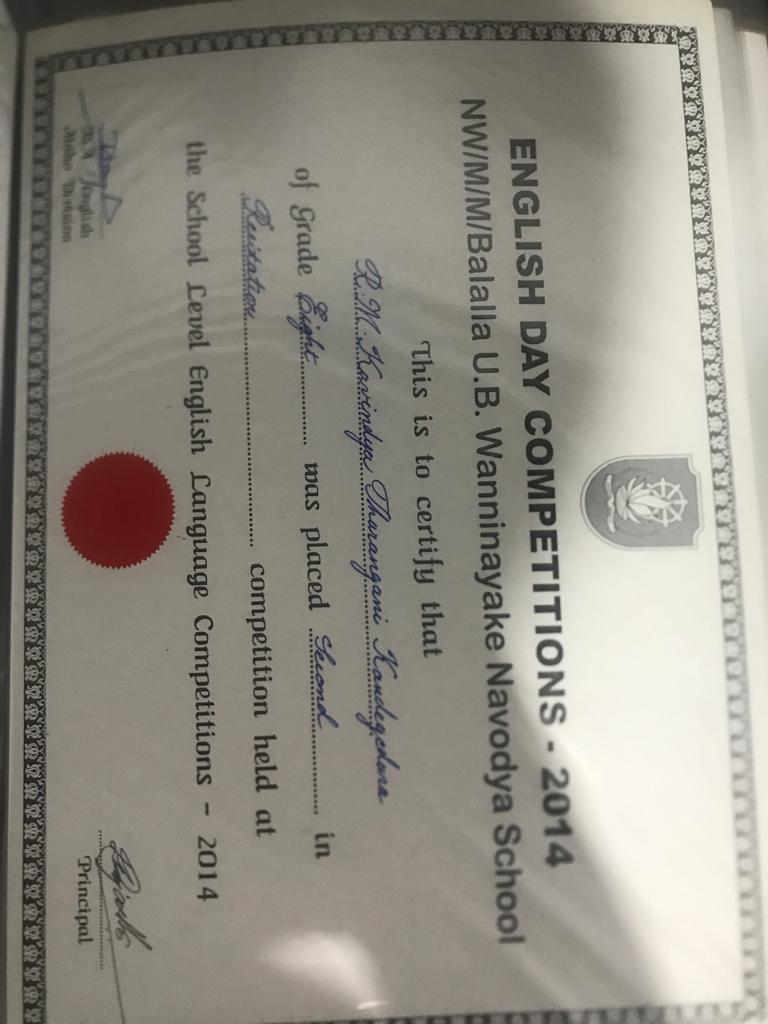 ENGLISH DAY COMPETITIONS - 2014
NW/M/M/Balalla U.B. Wanninayake Navodya School
This is to certify that
R.M. Kavindya Tharangani Kandegedara
of Grade Eight was placed Second in
Recitation competition held at
the School Level English Language Competitions - 2014
English
Maho Division
Principal